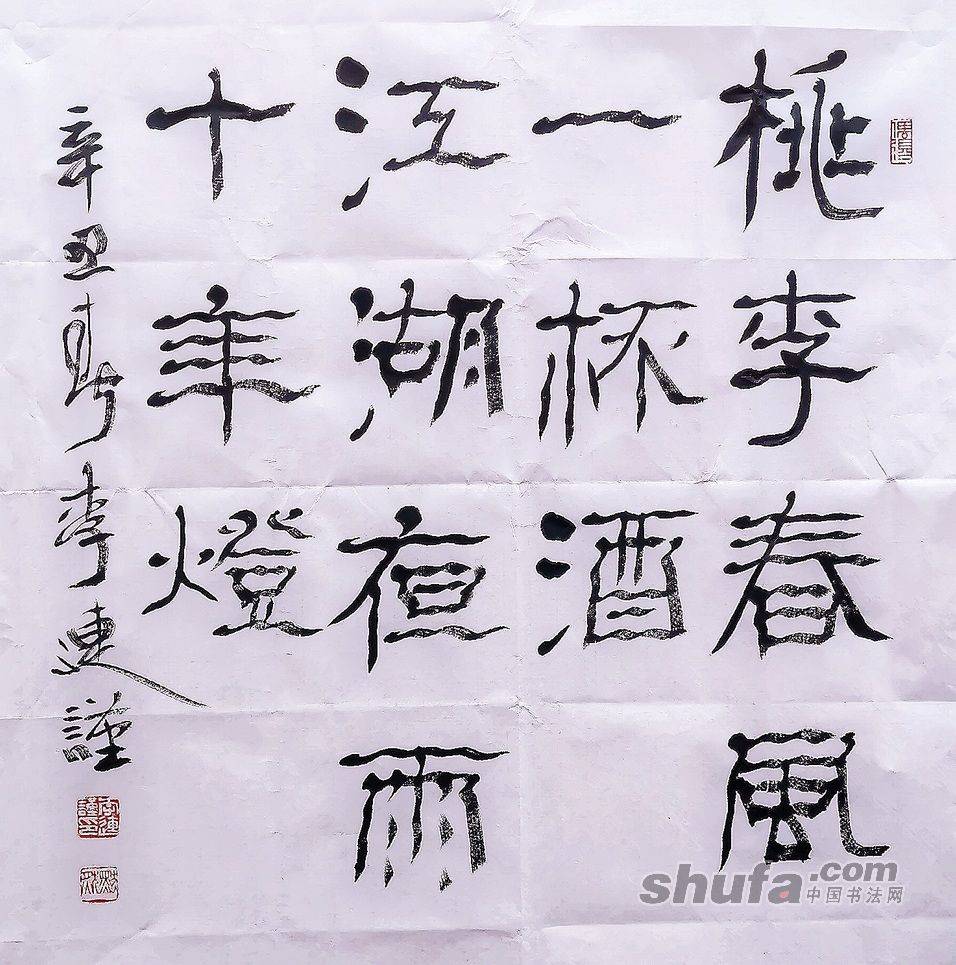 桃李春風
一杯酒
江湖夜雨
十年燈
辛丑春月李連謹
李連謹印
shufa.com
中国书法网